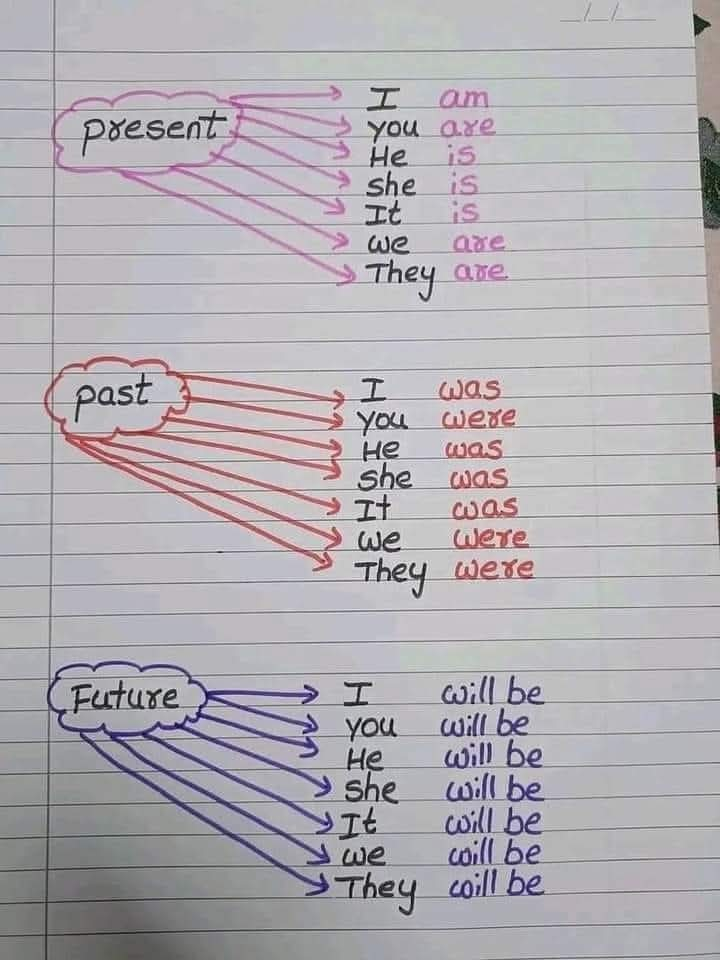 _/_/_
present
I am
you are
He is
she is
It is
we are
They are
past
I was
you were
He was
she was
It was
we were
They were
Future
I will be
you will be
He will be
she will be
It will be
we will be
They will be